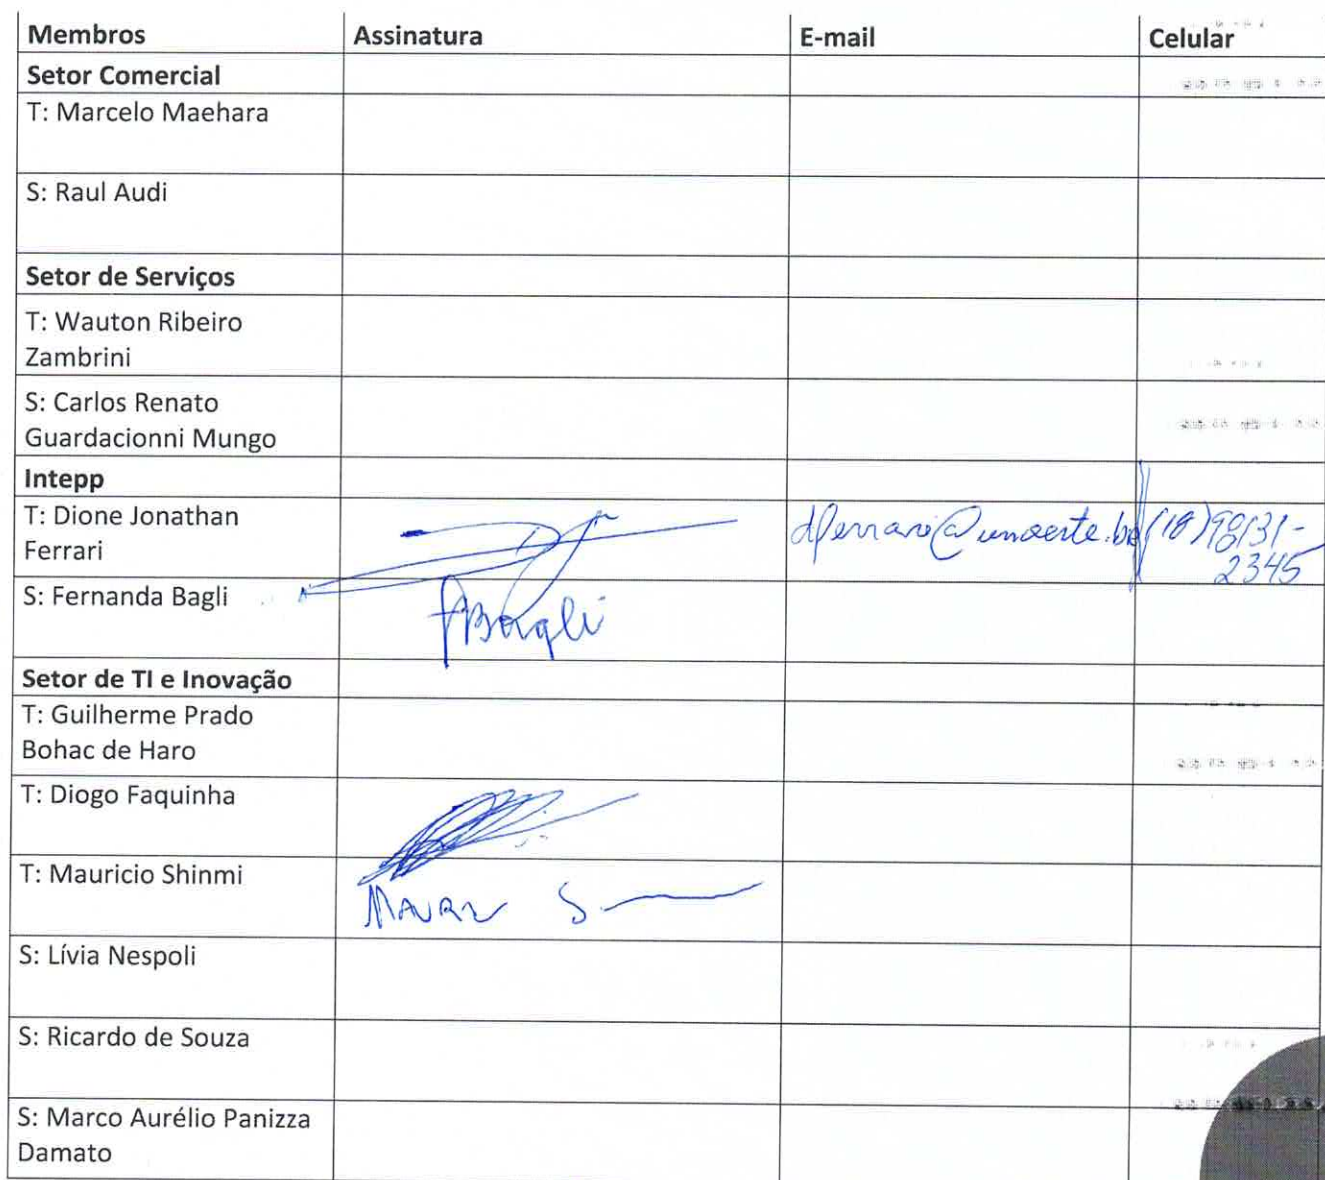 Membros Assinatura E-mail Celular
Setor Comercial
T: Marcelo Maehara
S: Raul Audi
Setor de Serviços
T: Wauton Ribeiro
Zambrini
S: Carlos Renato
Guardacionni Mungo
Intepp
T: Dione Jonathan
Ferrari
dferrari@unoeste.br (18)98131-
2345
S: Fernanda Bagli FBagli
Setor de TI e Inovação
T: Guilherme Prado
Bohac de Haro
T: Diogo Faquinha
T: Mauricio Shinmi
S: Lívia Nespoli
S: Ricardo de Souza
S: Marco Aurélio Panizza
Damato